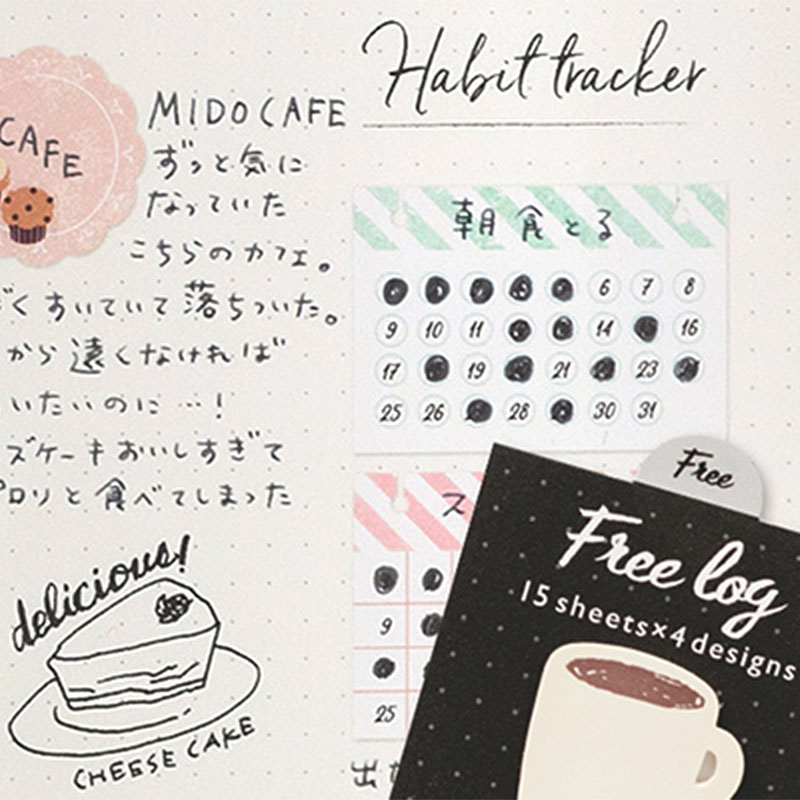 Habit tracker
CAFE
MIDO CAFE
ずっと気に
なっていた
こちらのカフェ。
くすいていて落ちついた。
から遠くなければ
いたいのに…!
ズケーキおいしすぎて
ロリと食べてしまった
delicious!
CHEESE CAKE
朝食とる
6 7 8
9 10 11 14 16
17 19 21 23
25 26 28 30 31
ス
9
25
出
Free
Free log
15 sheets×4 designs